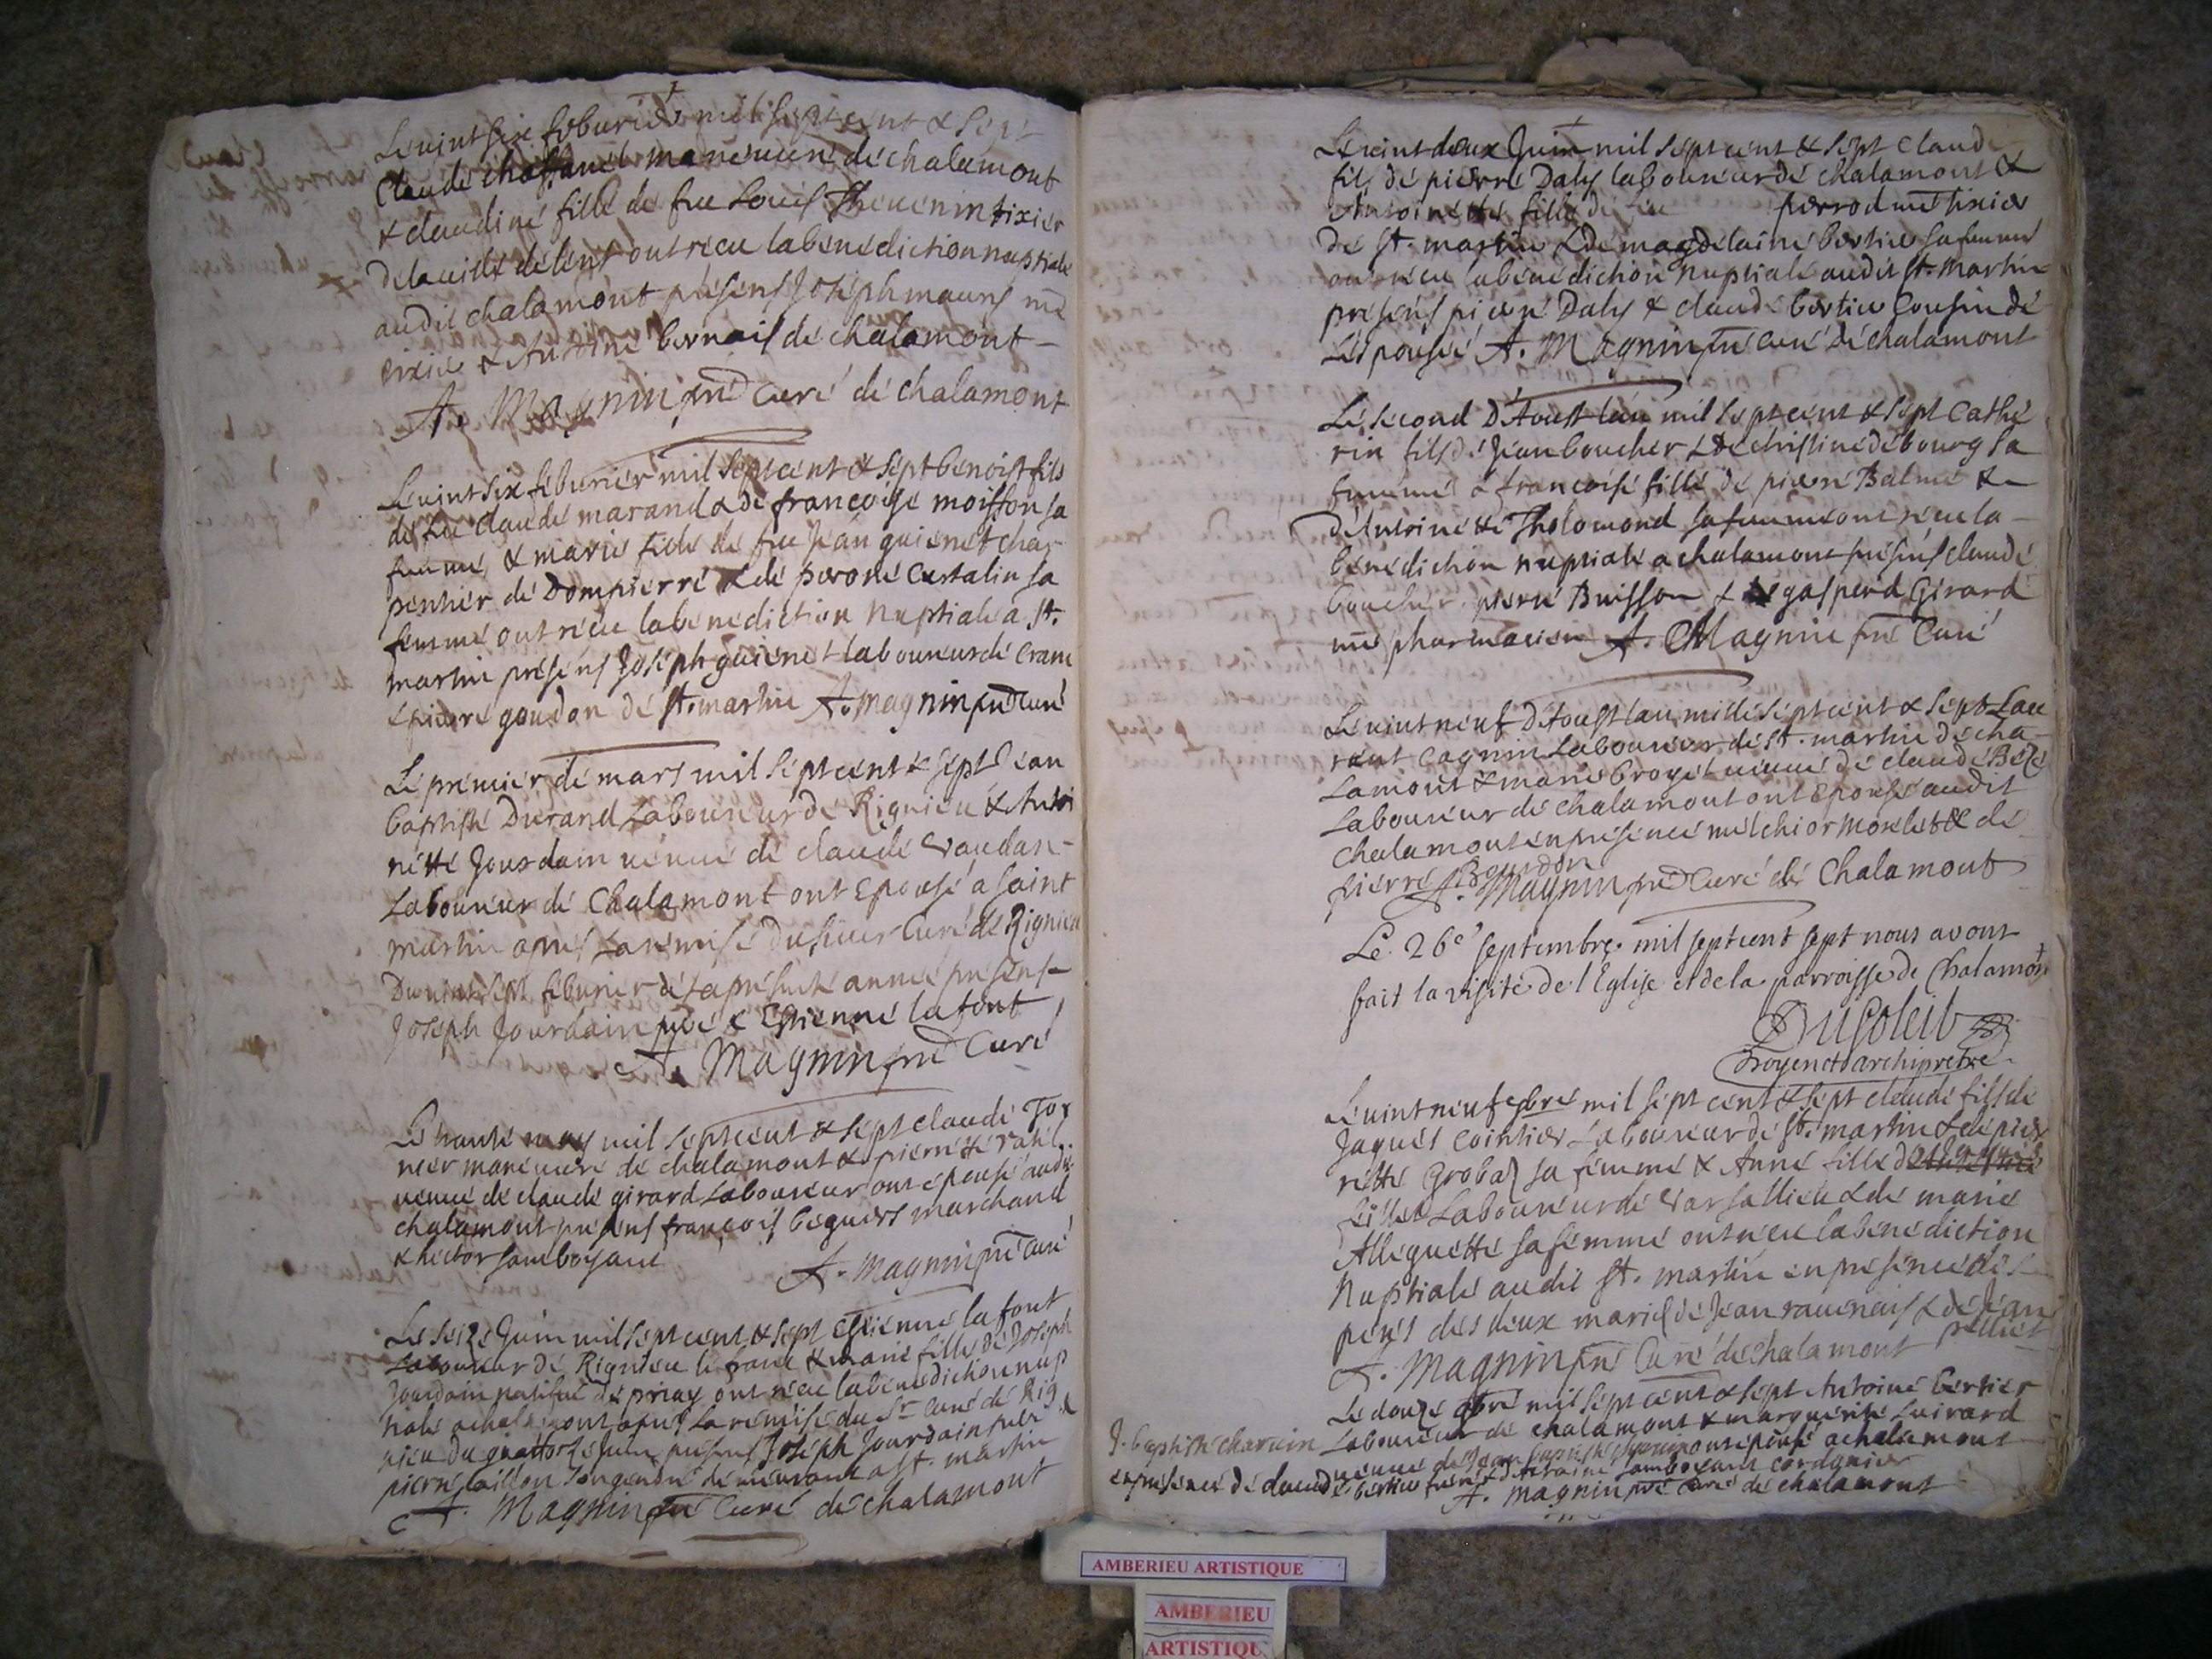 Le vint six feburier mil sept cent & sept
Claude manevure de chalamont
& claudine fille de feu Louis Thevenin tixier
de la ville de lent ont receu la benediction nuptiale
audit chalamont presens Joseph mauris me
tixier & Antoine bernais de chalamont
A. Magnin pre Curé de chalamont
Le vint six feburier mil sept cent & sept benoist fils
de feu claude marand & de francoise moisson sa
femme & marie fille de feu Jean guienet char
pentier de Dompierre & de perone Castalin sa
femme ont receu la benediction nuptiale a St.
martin presens Joseph guienet laboureur de crans
& pierre goudon de St. martin A. Magnin pre Curé
Le premier de mars mil sept cent & sept Jean
baptiste Durand Laboureur de Rignieu & Antoi
nette Jourdain veuve de claude Vaudan
Laboureur de Chalamont ont Epousé a saint
martin apres La remise du sieur Curé de Rignieu
Du vint sept feburier de la presente année presens
Joseph Jourdain & Estienne lafont
A. Magnin pre Curé
Le trante may mil sept cent & sept claude Tor
nier manevure de chalamont & pierrette
veuve de claude girard Laboureur ont epousé audit
chalamont presens françois beguers marchand
& hector samboysant
A. Magnin pre Curé
Le seize Juin mil sept cent & sept Estienne lafont
Laboureur de Rignieu le franc & marie fille de Joseph
Jourdain de priay ont receu la benediction nup
tiale a chalamont apres la remise du Sr curé de Rig
nieu du quatorze Juin presens Joseph Jourdain &
pierre son gendre demeurant a St. martin
A. Magnin pre Curé de chalamont
Le vint deux Juin mil sept cent & sept Claude
fils de pierre Daly laboureur de chalamont &
Antoinette fille de feu perrod me tixier
de St. martin & de magdelaine bertier sa femme
ont receu la benediction nuptiale audit St. Martin
presens pierre Daly & claude bertier Cousin de
Lespousée A. Magnin pre curé de chalamont
Le second D'Aoust lan mil sept cent & sept Cathe
rin fils de Jean boucher & de christine debourg sa
femme & francoise fille de pierre Balme &
d'Antoinette Tholomond sa femme ont receu la
benediction nuptiale a chalamont presens claude
boucher pierre Buisson & gasperd Girard
me pharmacien A. Magnin pre Curé
Le vint neuf d'Aoust lan mille sept cent & sept Lau
rent Cagnin Laboureur de St. martin de cha
Lamont & marie broyet veuve de claude
Laboureur de chalamont ont Epousé audit
Chalamont en presence melchior Morelet & de
pierre Bourdon
A. Magnin pre Curé de Chalamont
Le 26e septembre mil sept cent sept nous avons
fait la visite de l'Eglise et de la parroisse de Chalamon
Dusoleil
Doyen et archipretre
Le vint neuf mil sept cent & sept claude fils de
Jaques Cointier Laboureur de St. martin & de pier
rette Grobas sa femme & Anne fille
Laboureur de Varsallieu & de marie
Alleguette sa femme ont receu la benediction
Nuptiale audit St. martin en presence des
peres des deux mariés de Jean ravenais & de Jean
A. Magnin pre Curé de chalamont
Le douze mil sept cent & sept Antoine bertier
Laboureur de chalamont & marguerite Luirard
veuve de Jean baptiste charvin ont epousé a chalamont
J. baptiste charvin
en presence de claude bertier frere & d'Antoine samboysant cordonier
A. Magnin pre curé de chalamont
AMBERIEU ARTISTIQUE
AMBERIEU
ARTISTIQU